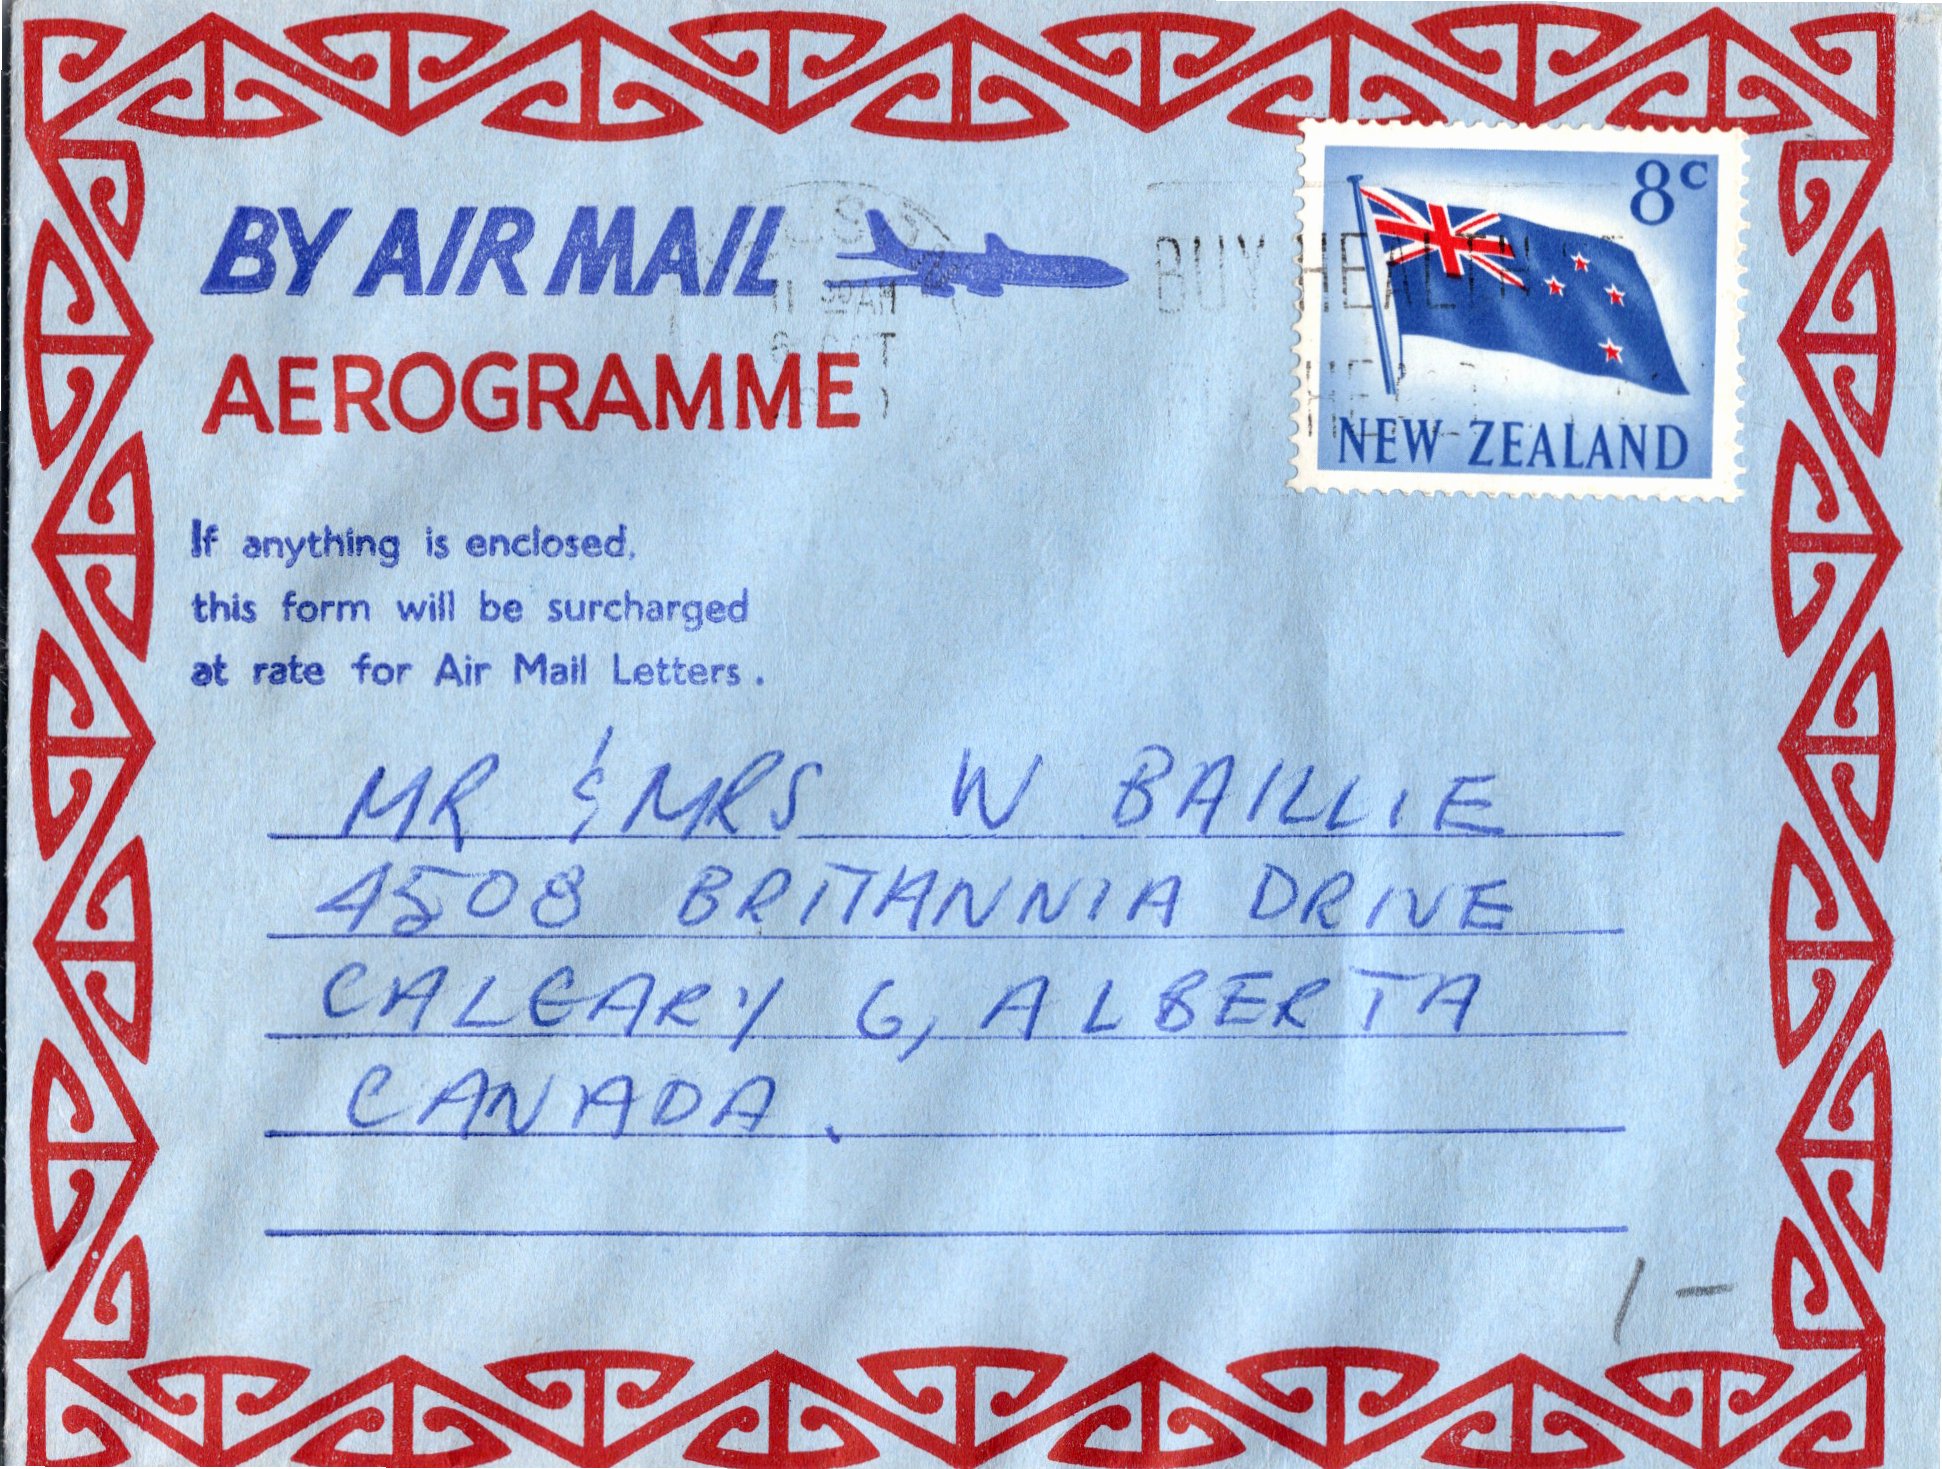 BY AIR MAIL
AEROGRAMME
8c
NEW ZEALAND
BUY HEALTH
OCT
If anything is enclosed,
this form will be surcharged
at rate for Air Mail Letters.
MR & MRS W BAILLIE
4508 BRITANNIA DRIVE
CALGARY 6, ALBERTA
CANADA.
1-